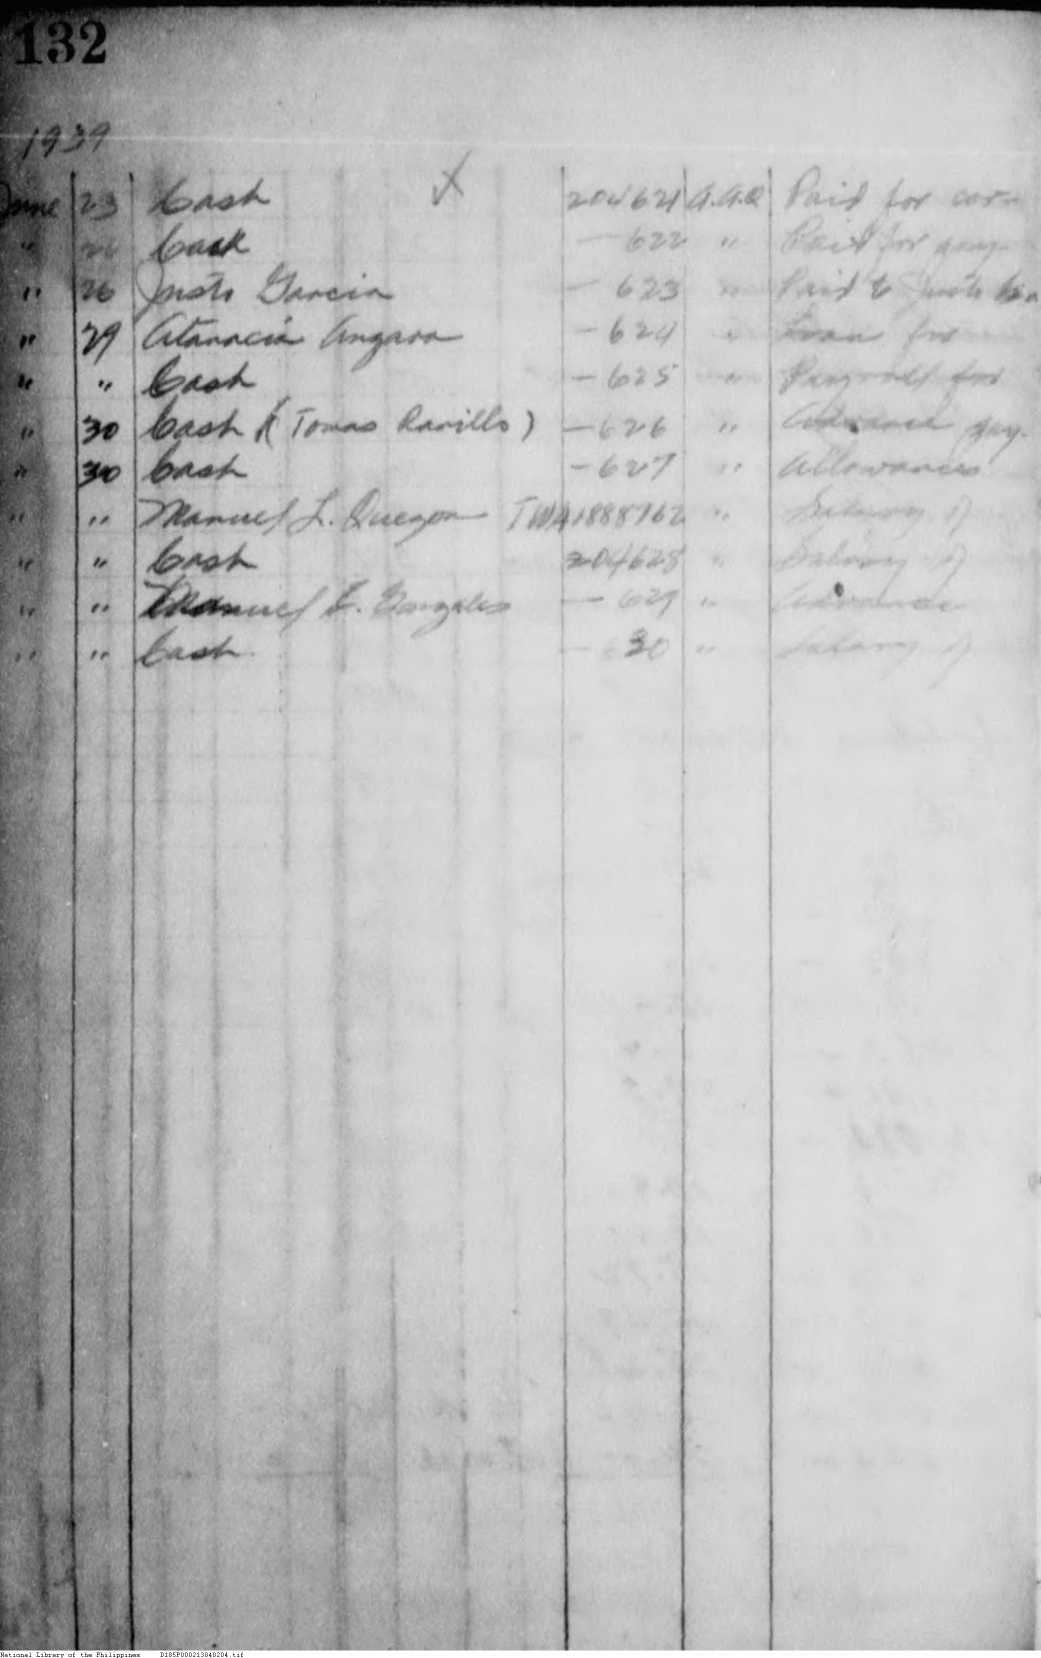 132
1939
June 23 Cash 204621 A.A.Q Paid for car-
" 26 Cash — 622 " Paid for pay-
" 26 Justo Garcia — 623 " Paid to Justo
" 29 Atanacia Angara — 624 " Loan for
" " Cash — 625 " Payroll for
" 30 Cash (Tomas Ranillo) — 626 " Advance pay-
" 30 Cash — 627 " Allowances
" " Manuel L. Quezon TWA1888762 " Salary of
" " Cash 204628 " Salary of
" " Manuel E. Gonzales — 629 " Advance
" " Cash — 630 " Salary of
National Library of the Philippines D185P000213040204.tif